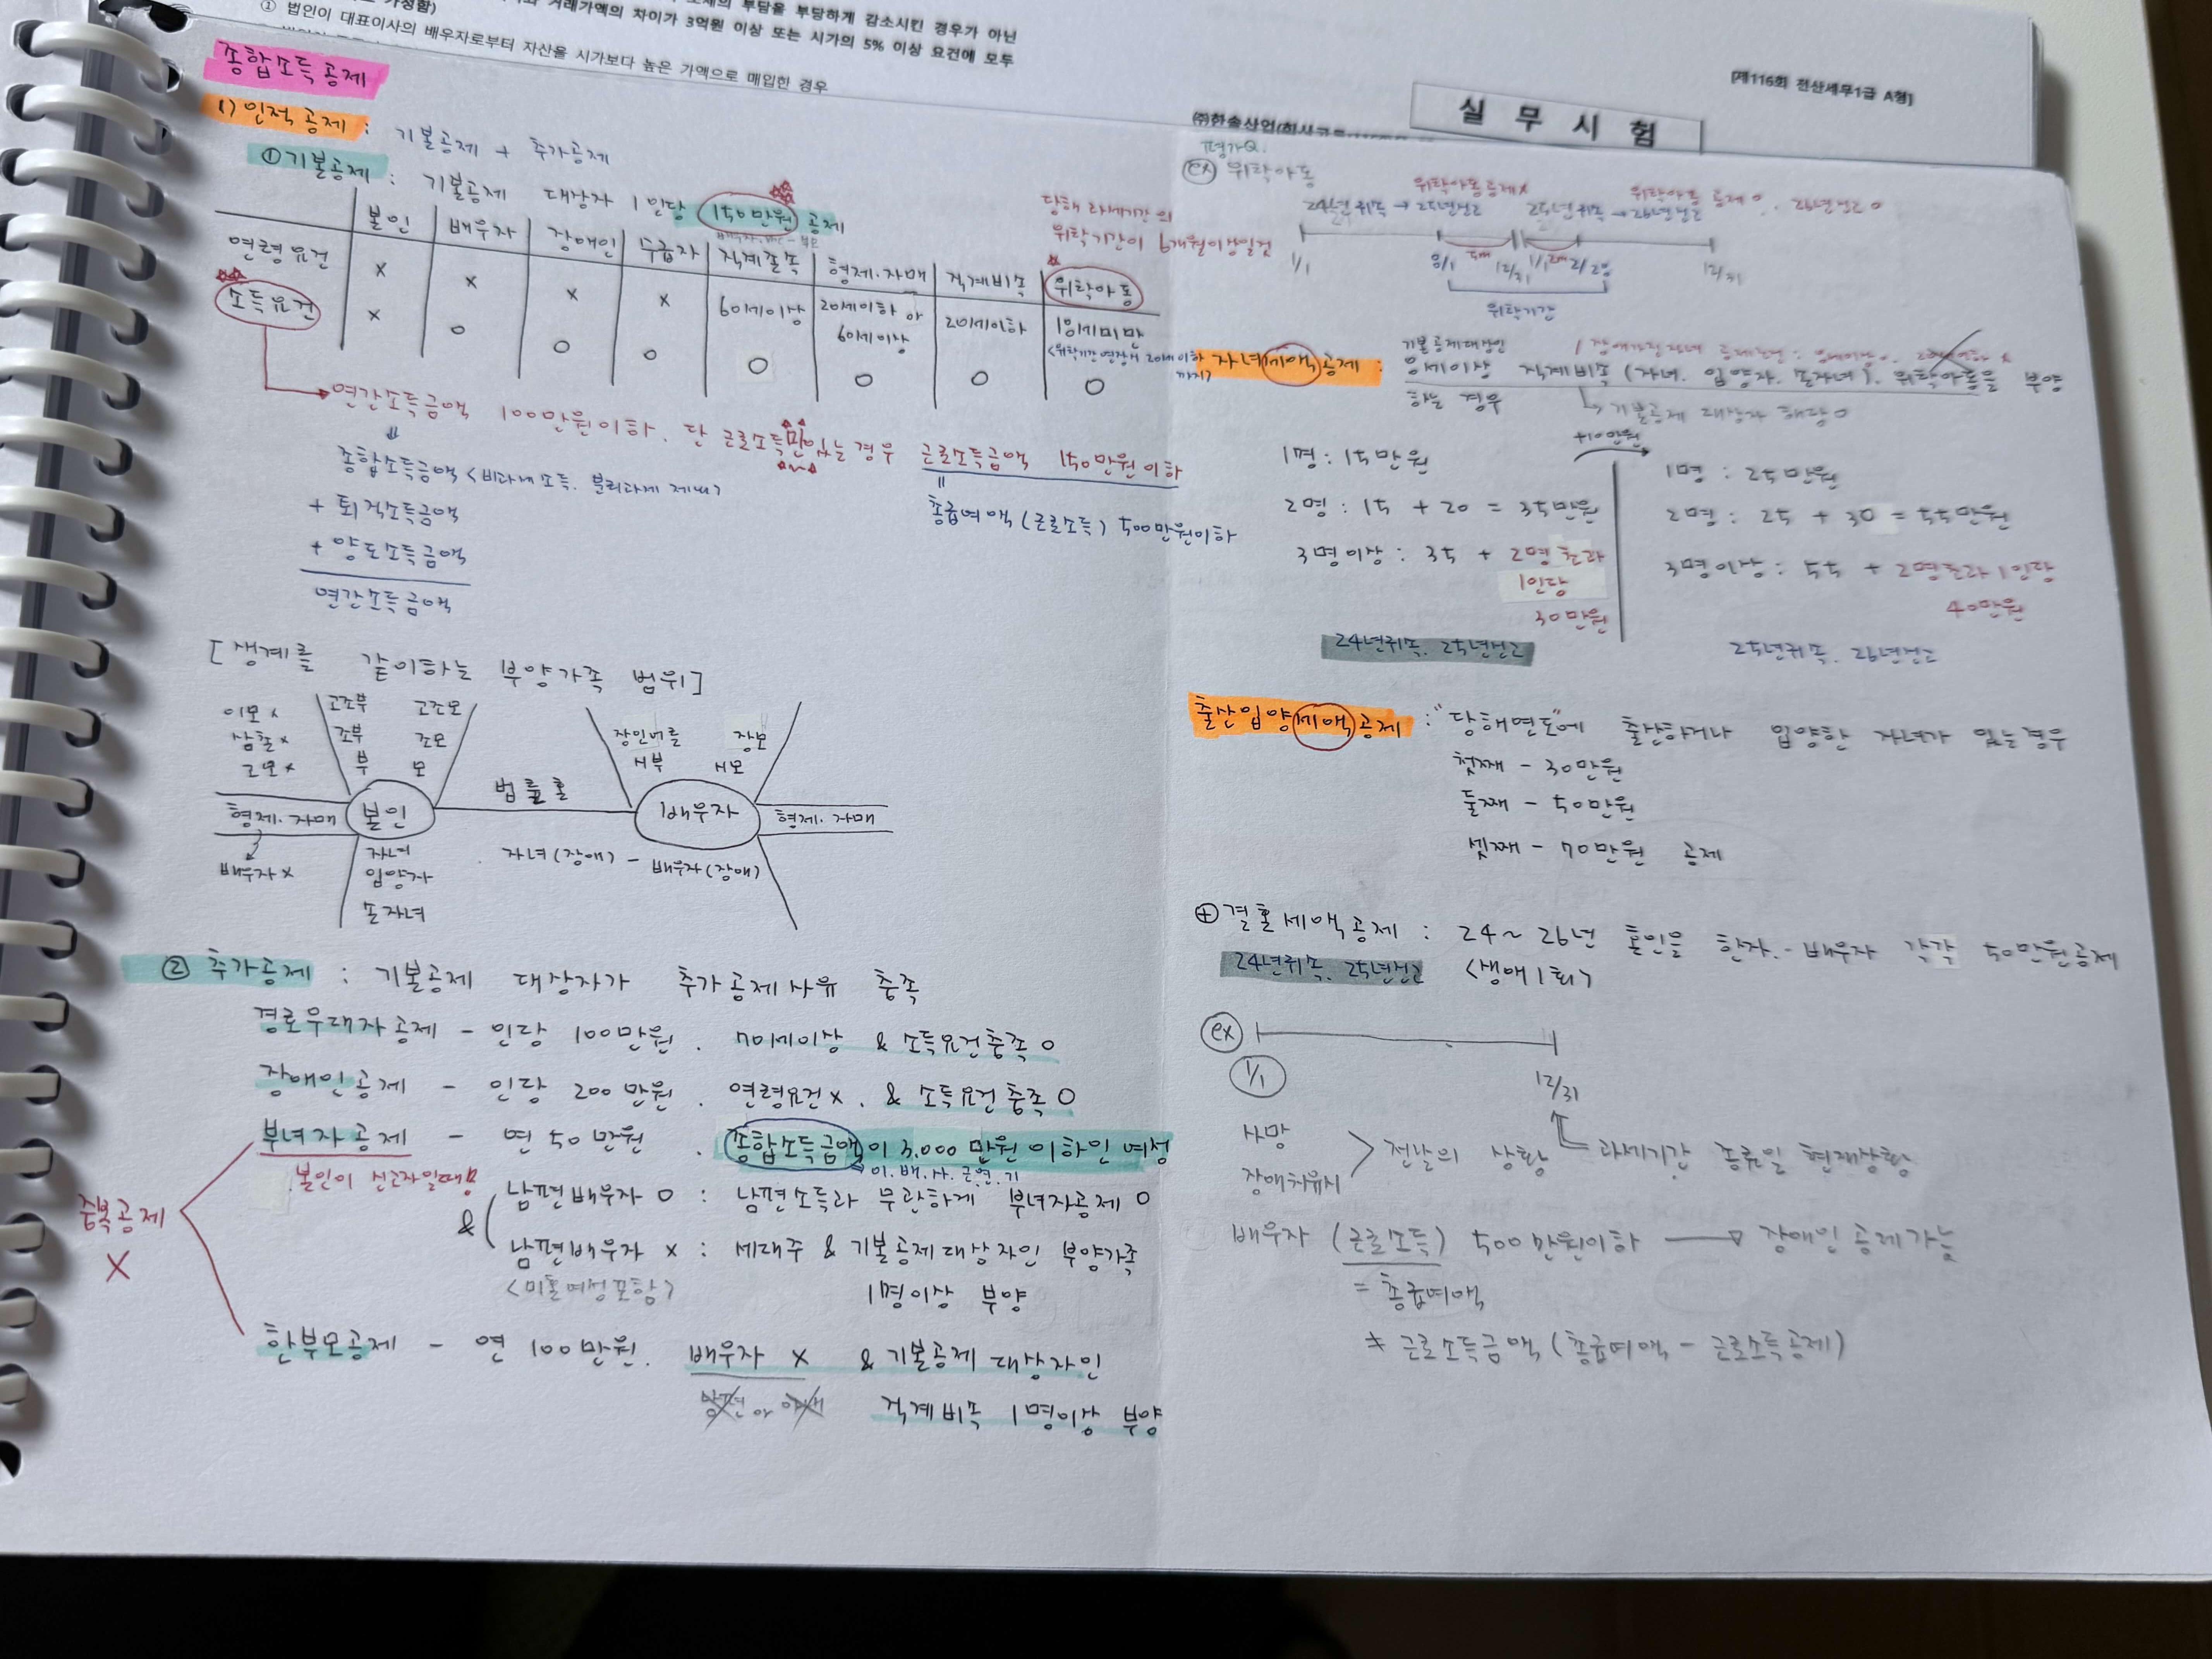 ① 법인이 대표이사의 배우자로부터 자산을 시가보다 높은 가액으로 매입한 경우
부담을 부당하게 감소시킨 경우가 아닌
거래가액의 차이가 3억원 이상 또는 시가의 5% 이상 요건에 모두
[제116회 전산세무1급 A형]
실 무 시 험
㈜한솔산업
종합소득공제
1) 인적공제 : 기본공제 + 추가공제
① 기본공제 : 기본공제 대상자 1인당 150만원 공제
본인 배우자 장애인 수급자 직계존속 형제.자매 직계비속 위탁아동
연령요건 x x x x 60세이상 20세이하 or 60세이상 20세이하 18세미만
<위탁기간 연장시 20세이하까지>
소득요건 x o o o o o o o
당해 과세기간의
위탁기간이 6개월이상일것
연간소득금액 100만원이하. 단 근로소득만있는경우 근로소득금액 150만원이하
=
총급여액(근로소득) 500만원이하
=
종합소득금액 <비과세소득. 분리과세 제외>
+ 퇴직소득금액
+ 양도소득금액
연간소득금액
[생계를 같이하는 부양가족 범위]
이모 x
삼촌 x
고모 x
고조부 고조모
조부 조모
부 모
장인어른 장모
시부 시모
형제.자매 본인 법률혼 배우자 형제.자매
배우자 x
자녀
입양자
손자녀
자녀(장애) - 배우자(장애)
② 추가공제 : 기본공제 대상자가 추가공제사유 충족
경로우대자공제 - 인당 100만원. 70세이상 & 소득요건충족 o
장애인공제 - 인당 200만원. 연령요건x. & 소득요건충족 o
부녀자공제 - 연 50만원. 종합소득금액이 3,000만원 이하인 여성
본인이 신고자일때만
이.배.사.근.연.기
& 남편배우자 o : 남편소득과 무관하게 부녀자공제 o
남편배우자 x : 세대주 & 기본공제대상자인 부양가족
<미혼여성포함>
1명이상 부양
중복공제
X
한부모공제 - 연 100만원. 배우자 x & 기본공제 대상자인
직계비속 1명이상 부양
ex 위탁아동
위탁아동공제x
24년귀속 → 25년신고
위탁아동 공제o. 26년신고o
25년귀속 → 26년신고
1/1 8/1 5m 12/31 1/1 2m 12/31
위탁기간
자녀세액공제 : 기본공제대상인
8세이상 직계비속(자녀. 입양자. 손자녀). 위탁아동을 부양
하는 경우
→ 기본공제 대상자 해당o
1명 : 15만원
2명 : 15 + 20 = 35만원
3명이상 : 35 + 2명초과
1인당
30만원
24년귀속. 25년신고
+10만원
1명 : 25만원
2명 : 25 + 30 = 55만원
3명이상 : 55 + 2명초과 1인당
40만원
25년귀속. 26년신고
출산입양세액공제 : "당해연도"에 출산하거나 입양한 자녀가 있는경우
첫째 - 30만원
둘째 - 50만원
셋째 - 70만원 공제
⊕ 결혼세액공제 : 24~26년 혼인을 한자.- 배우자 각각 50만원공제
24년귀속. 25년신고 <생애1회>
ex
1/1 12/31
사망
장애치유시
> 전날의 상황
과세기간 종료일 현재상황
배우자 (근로소득) 500만원이하 → 장애인 공제가능
= 총급여액
≠ 근로소득금액(총급여액 - 근로소득공제)